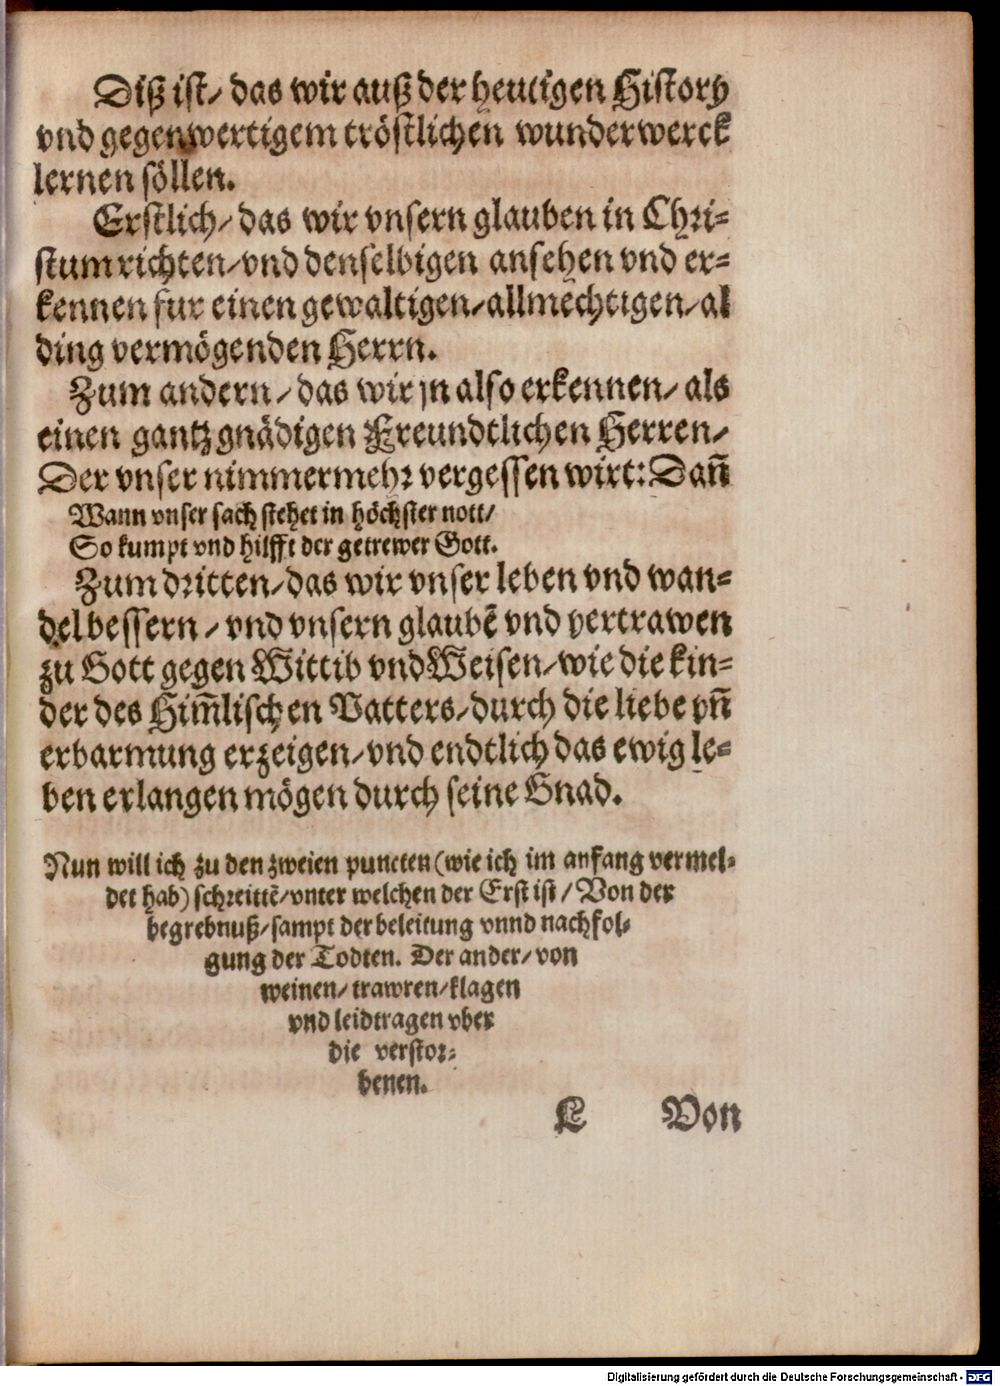 Diß ist/ das wir auß der heutigen History
vnd gegenwertigem tröstlichen wunderwerck
lernen söllen.
Erstlich/ das wir vnsern glauben in Chri=
stum richten/vnd denselbigen ansehen vnd er=
kennen fur einen gewaltigen/allmechtigen/al
ding vermögenden Herrn.
Zum andern/ das wir jn also erkennen/ als
einen gantz gnädigen Freundtlichen Herren/
Der vnser nimmermehr vergessen wirt: Dañ
Wann vnser sach stehet in höchster nott/
So kumpt vnd hilfft der getrewer Gott.
Zum dritten/das wir vnser leben vnd wan=
del bessern/ vnd vnsern glaubẽ vnd vertrawen
zu Gott gegen Wittib vnd Weisen/wie die kin=
der des Him̃lischen Vatters/durch die liebe vñ
erbarmung erzeigen/vnd endtlich das ewig le=
ben erlangen mögen durch seine Gnad.
Nun will ich zu den zweien puncten (wie ich im anfang vermel=
det hab) schreittẽ/vnter welchen der Erst ist/ Von der
begrebnuß/sampt der beleitung vnnd nachfol=
gung der Todten. Der ander/ von
weinen/ trawren/klagen
vnd leidtragen vber
die verstor=
benen.
L Von
Digitalisierung gefördert durch die Deutsche Forschungsgemeinschaft - DFG